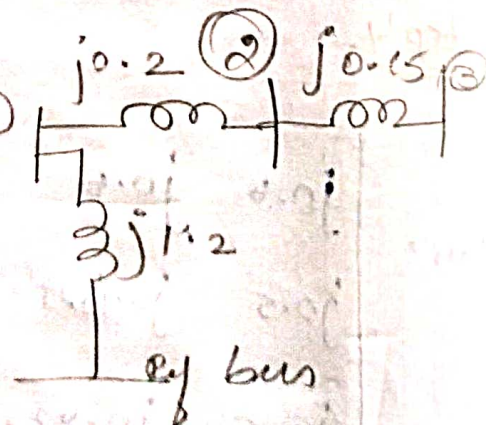 j0.2 2 j0.15 3
j1.2
ref bus